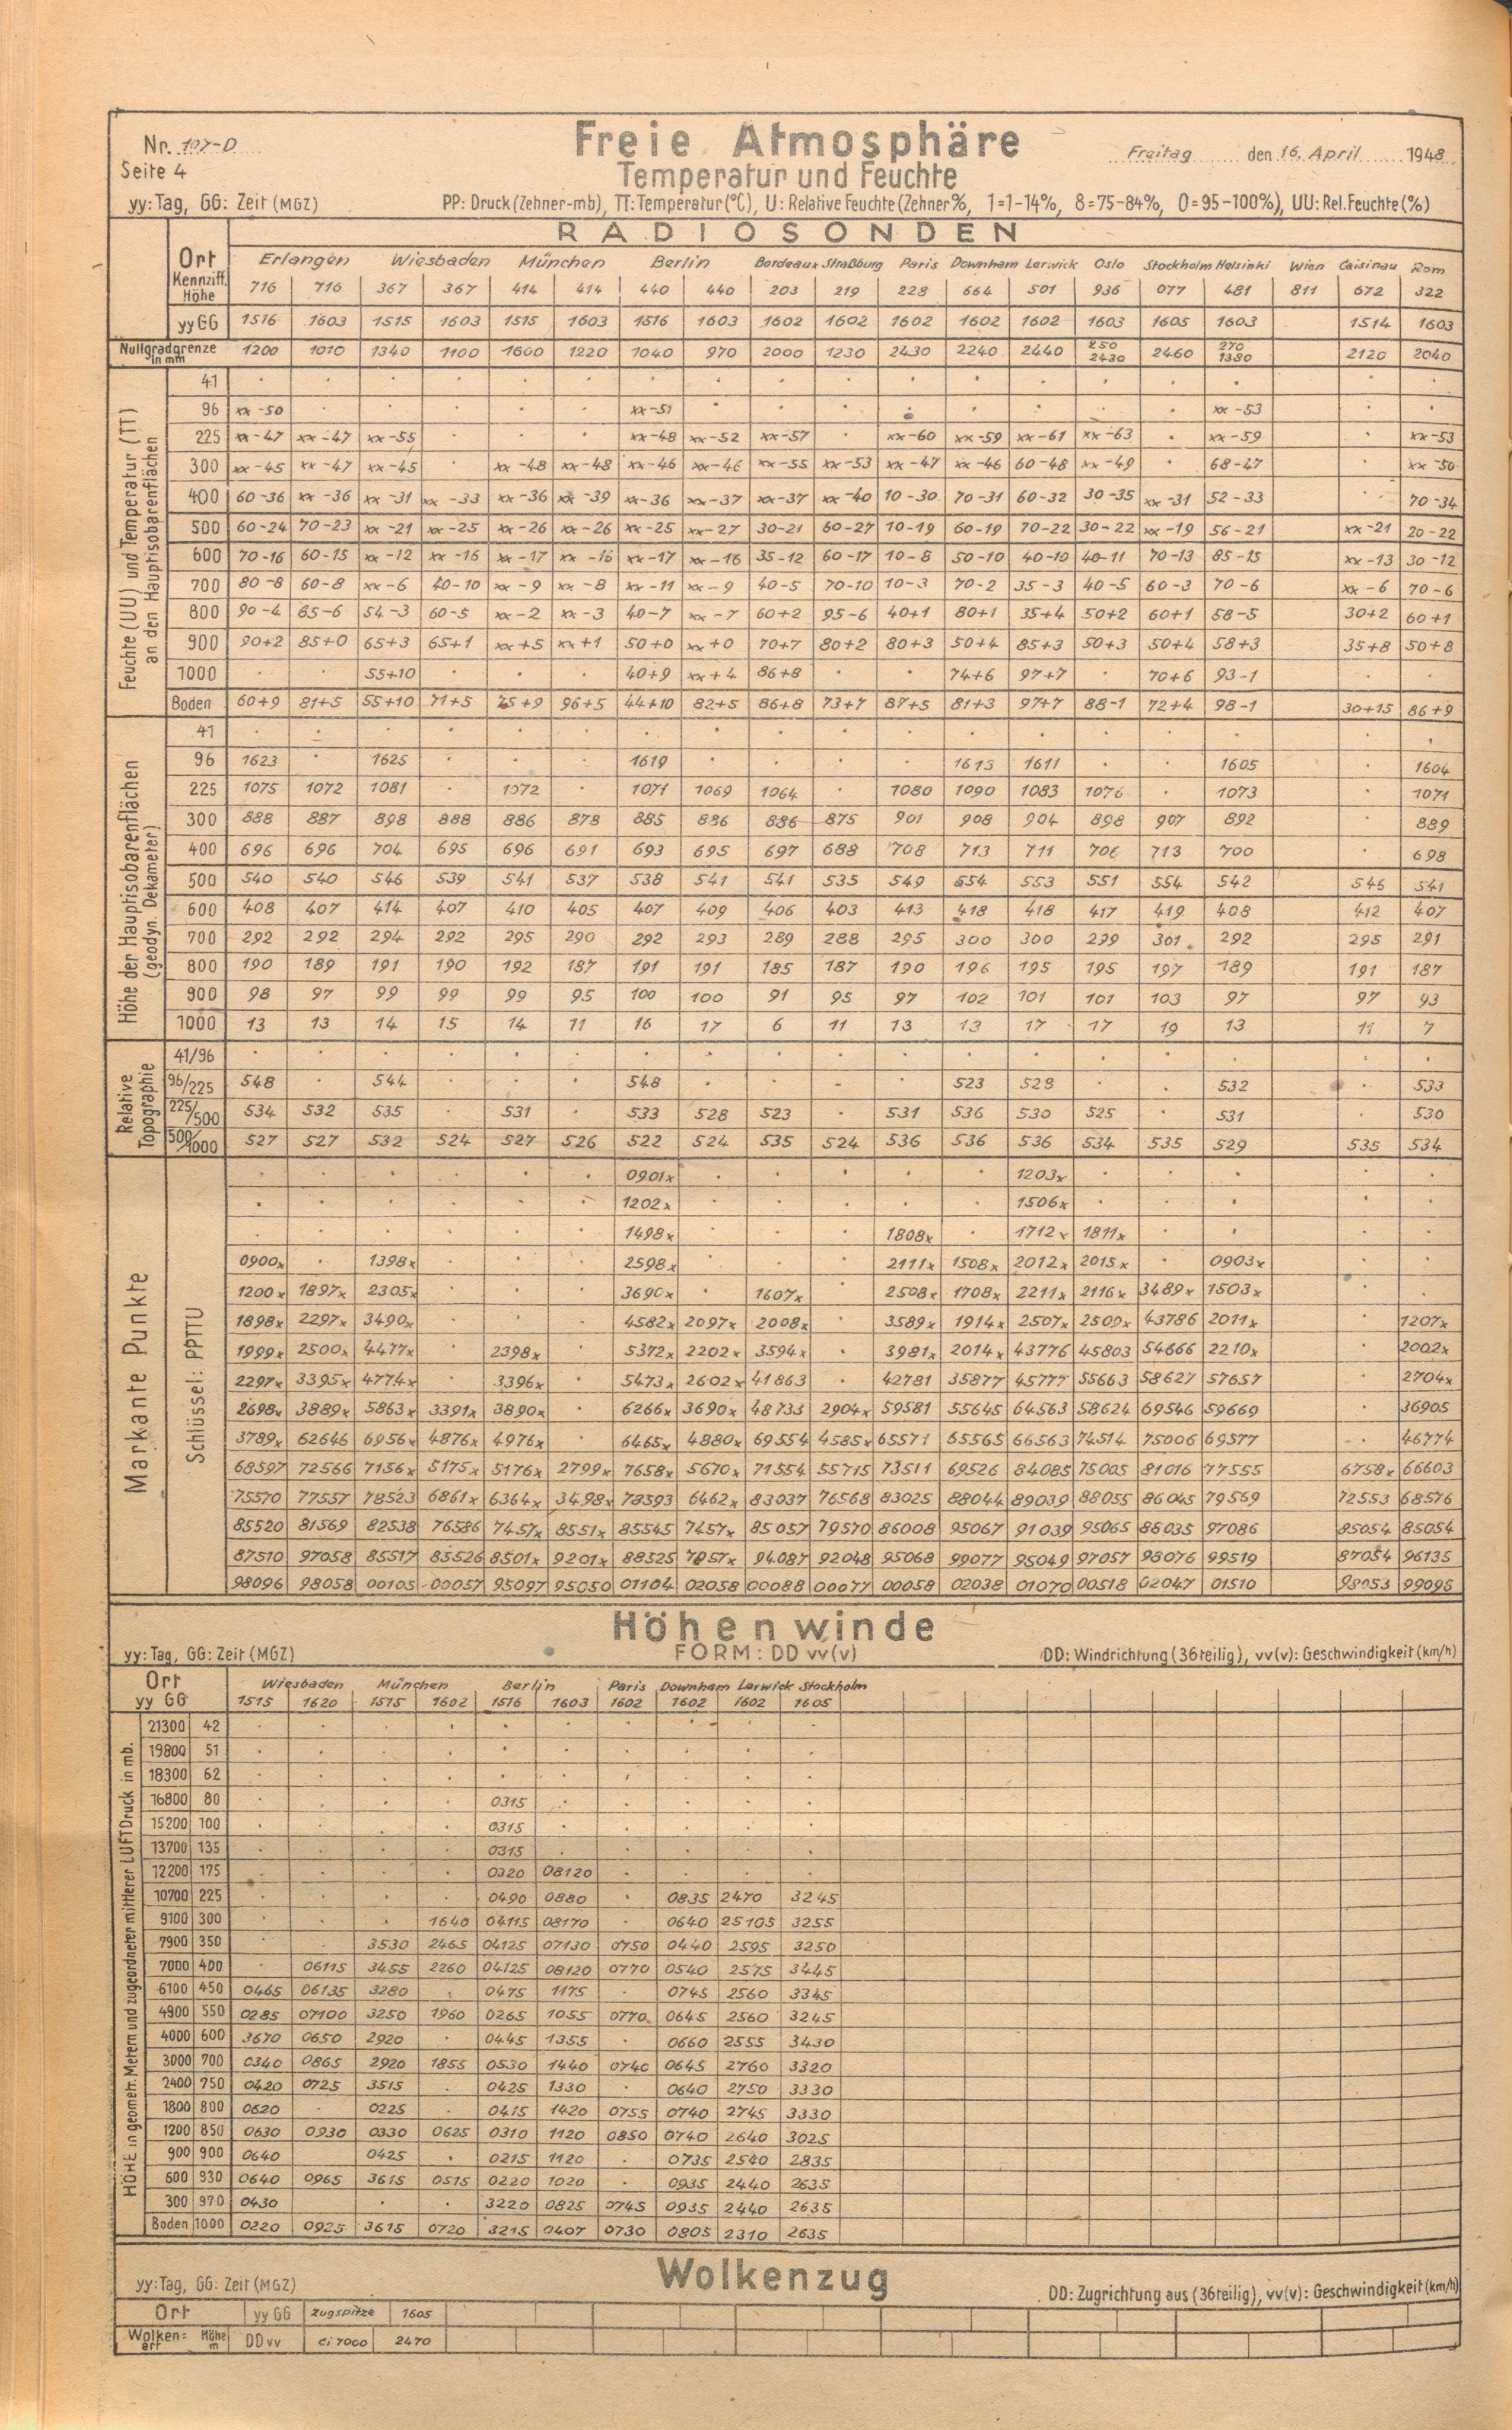 Nr. 107-D
Freie Atmosphäre
Freitag den 16. April 1948
Seite 4
Temperatur und Feuchte
yy: Tag, GG: Zeit (MGZ) PP: Druck (Zehner-mb), TT: Temperatur (°C), U: Relative Feuchte (Zehner %, 1=1-14%, 8=75-84%, 0=95-100%), UU: Rel. Feuchte (%)
RADIOSONDEN
Ort Erlangen Wiesbaden München Berlin Bordeaux Straßburg Paris Downham Lerwick Oslo Stockholm Helsinki Wien Caisinau Rom
Kennziff. Höhe 716 716 367 367 414 414 440 440 203 219 228 664 501 936 077 481 811 672 322
yy GG 1516 1603 1515 1603 1515 1603 1516 1603 1602 1602 1602 1602 1602 1603 1605 1603 1514 1603
Nullgradgrenze in mm 1200 1010 1340 1100 1600 1220 1040 970 2000 1230 2430 2240 2440 250 2430 2460 270 1380 2120 2040
Feuchte (UU) und Temperatur (TT) an den Hauptisobarenflächen
41
96 xx-50 xx-51 xx-53
225 xx-47 xx-47 xx-55 xx-48 xx-52 xx-57 xx-60 xx-59 xx-61 xx-63 xx-59 xx-53
300 xx-45 xx-47 xx-45 xx-48 xx-48 xx-46 xx-46 xx-55 xx-53 xx-47 xx-46 60-48 xx-49 68-47 xx-50
400 60-36 xx-36 xx-31 xx-33 xx-36 xx-39 xx-36 xx-37 xx-37 xx-40 10-30 70-31 60-32 30-35 xx-31 52-33 70-34
500 60-24 70-23 xx-21 xx-25 xx-26 xx-26 xx-25 xx-27 30-21 60-27 10-19 60-19 70-22 30-22 xx-19 56-21 xx-21 20-22
600 70-16 60-15 xx-12 xx-16 xx-17 xx-16 xx-17 xx-16 35-12 60-17 10-8 50-10 40-10 40-11 70-13 85-15 xx-13 30-12
700 80-8 60-8 xx-6 40-10 xx-9 xx-8 xx-11 xx-9 40-5 70-10 10-3 70-2 35-3 40-5 60-3 70-6 xx-6 70-6
800 90-4 85-6 54-3 60-5 xx-2 xx-3 40-7 xx-7 60+2 95-6 40+1 80+1 35+4 50+2 60+1 58-5 30+2 60+1
900 90+2 85+0 65+3 65+1 xx+5 xx+1 50+0 xx+0 70+7 80+2 80+3 50+4 85+3 50+3 50+4 58+3 35+8 50+8
1000 55+10 40+9 xx+4 86+8 74+6 97+7 70+6 93-1
Boden 60+9 81+5 55+10 71+5 75+9 96+5 44+10 82+5 86+8 73+7 87+5 81+3 97+7 88-1 72+4 98-1 30+15 86+9
Höhe der Hauptisobarenflächen (geodyn. Dekameter)
41
96 1623 1625 1619 1613 1611 1605 1604
225 1075 1072 1081 1072 1071 1069 1064 1080 1090 1083 1076 1073 1071
300 888 887 898 888 886 878 885 886 886 875 901 908 904 898 907 892 889
400 696 696 704 695 696 691 693 695 697 688 708 713 711 706 713 700 698
500 540 540 546 539 541 537 538 541 541 535 549 554 553 551 554 542 546 541
600 408 407 414 407 410 405 407 409 406 403 413 418 418 417 419 408 412 407
700 292 292 294 292 295 290 292 293 289 288 295 300 300 299 301 292 295 291
800 190 189 191 190 192 187 191 191 185 187 190 196 195 195 197 189 191 187
900 98 97 99 99 99 95 100 100 91 95 97 102 101 101 103 97 97 93
1000 13 13 14 15 14 11 16 17 6 11 13 13 17 17 19 13 11 7
Relative Topographie
41/96
96/225 548 544 548 523 528 532 533
225/500 534 532 535 531 533 528 523 531 536 530 525 531 530
500/1000 527 527 532 524 527 526 522 524 535 524 536 536 536 534 535 529 535 534
Markante Punkte
Schlüssel: PPTTU
0901x 1203x
1202x 1506x
1498x 1808x 1712x 1811x
0900x 1398x 2598x 2111x 1508x 2012x 2015x 0903x
1200x 1897x 2305x 3690x 1607x 2508x 1708x 2211x 2116x 3489x 1503x
1898x 2297x 3490x 4582x 2097x 2008x 3589x 1914x 2507x 2509x 43786 2011x 1207x
1999x 2500x 4477x 2398x 5372x 2202x 3594x 3981x 2014x 43776 45803 54666 2210x 2002x
2297x 3395x 4774x 3396x 5473x 2602x 41863 42781 35877 45777 55663 58627 57657 2704x
2698x 3889x 5863x 3391x 3890x 6266x 3690x 48733 2904x 59581 55645 64563 58624 69546 59669 36905
3789x 62646 6956x 4876x 4976x 6465x 4880x 69554 4585x 65571 65565 66563 74514 75006 69577 46774
68597 72566 7156x 5175x 5176x 2799x 7658x 5670x 71554 55715 73511 69526 84085 75005 81016 77555 6758x 66603
75570 77557 78523 6861x 6364x 3498x 78593 6462x 83037 76568 83025 88044 89039 88055 86045 79569 72553 68576
85520 81569 82538 76586 7457x 8551x 85545 7457x 85057 79570 86008 95067 91039 95065 86035 97086 85054 85054
87510 97058 85517 85526 8501x 9201x 88525 7957x 94087 92048 95068 99077 95049 97057 98076 99519 87054 96135
98096 98058 00105 00057 95097 95050 01104 02058 00088 00077 00058 02038 01070 00518 02047 01510 98053 99095
Höhenwinde
yy: Tag, GG: Zeit (MGZ) FORM: DD vv(v) DD: Windrichtung (36teilig), vv(v): Geschwindigkeit (km/h)
Ort Wiesbaden München Berlin Paris Downham Lerwick Stockholm
yy GG 1515 1620 1515 1602 1516 1603 1602 1602 1602 1605
HÖHE in geometr. Metern und zugeordneter mittlerer LUFTDruck in mb.
21300 42
19800 51
18300 62
16800 80 0315
15200 100 0315
13700 135 0315
12200 175 0320 08120
10700 225 0490 0880 0835 2470 3245
9100 300 1640 04115 08170 0640 25105 3255
7900 350 3530 2465 04125 07130 0750 0440 2595 3250
7000 400 06115 3455 2260 04125 08120 0770 0540 2575 3445
6100 450 0465 06135 3280 0475 1175 0745 2560 3345
4900 550 0285 07100 3250 1960 0265 1055 0770 0645 2560 3245
4000 600 3670 0650 2920 0445 1355 0660 2555 3430
3000 700 0340 0865 2920 1855 0530 1440 0740 0645 2760 3320
2400 750 0420 0725 3515 0425 1330 0640 2750 3330
1800 800 0620 0225 0415 1420 0755 0740 2745 3330
1200 850 0630 0930 0330 0625 0310 1120 0850 0740 2640 3025
900 900 0640 0425 0215 1120 0735 2540 2835
600 930 0640 0965 3615 0515 0220 1020 0935 2440 2635
300 970 0430 3220 0825 0745 0935 2440 2635
Boden 1000 0220 0925 3615 0720 3215 0407 0730 0805 2310 2635
Wolkenzug
yy: Tag, GG: Zeit (MGZ) DD: Zugrichtung aus (36teilig), vv(v): Geschwindigkeit (km/h)
Ort yy GG Zugspitze 1605
Wolken=art Höhe m DD vv Ci 7000 2470